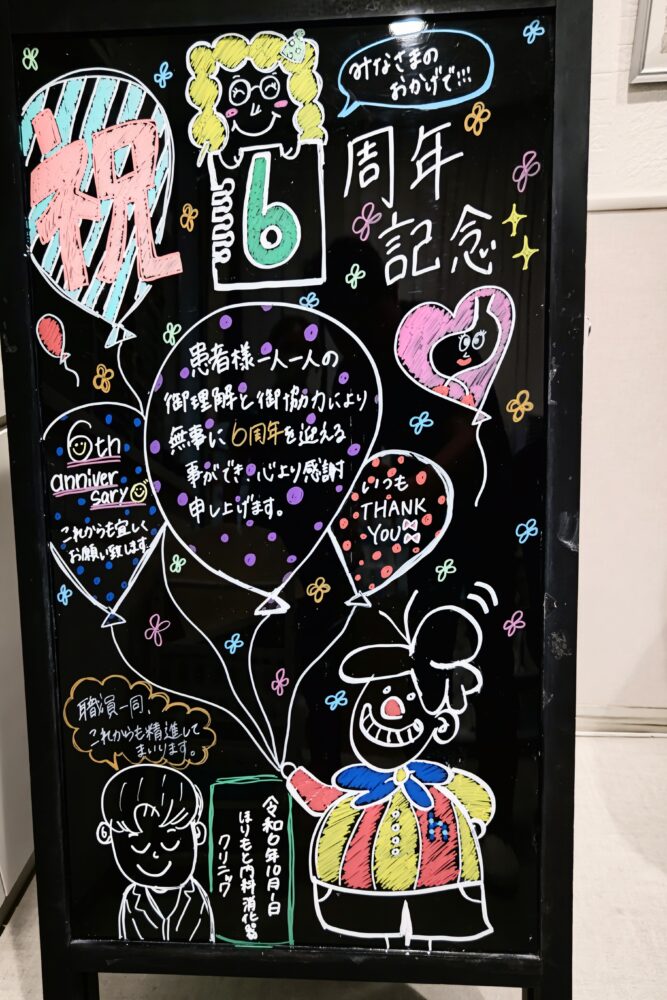 みなさまの
おかげで!!!
祝
6
周年
記念
患者様一人一人の
御理解と御協力により
無事に6周年を迎える
事ができ、心より感謝
申し上げます。
6th
anniver
sary
これからも宜しく
お願い致します
いつも
THANK
YOU
職員一同、
これからも精進して
まいります。
令和6年10月1日
ほりもと内科消化器
クリニック
h